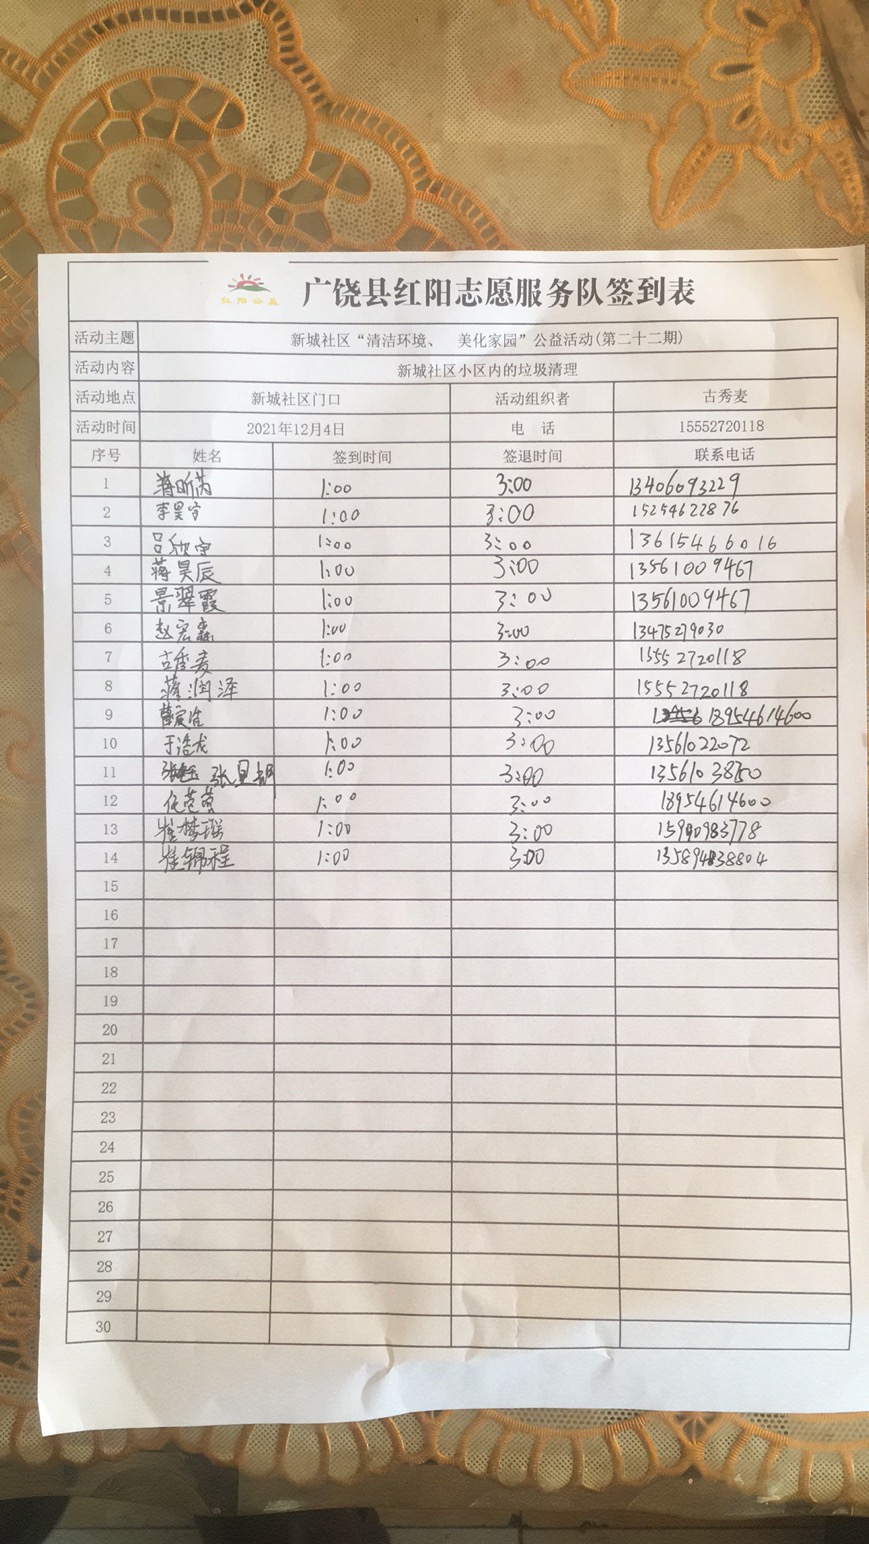 红阳公益 广饶县红阳志愿服务队签到表
活动主题 新城社区“清洁环境、 美化家园”公益活动(第二十二期)
活动内容 新城社区小区内的垃圾清理
活动地点 新城社区门口 活动组织者 古秀麦
活动时间 2021年12月4日 电 话 15552720118
序号 姓名 签到时间 签退时间 联系电话
1 蒋昕芮 1:00 3:00 13406093229
2 李昊 1:00 3:00 15254622876
3 吕欣 1:00 3:00 13615466016
4 蒋昊辰 1:00 3:00 13561009467
5 景翠霞 1:00 3:00 13561009467
6 赵宏鑫 1:00 3:00 13475279030
7 古秀麦 1:00 3:00 15552720118
8 蒋润泽 1:00 3:00 15552720118
9 1:00 3:00 18954614600
10 于浩龙 1:00 3:00 13561022072
11 张 1:00 3:00 13561038
12 1:00 3:00 18954614600
13 崔梦瑶 1:00 3:00 983778
14 崔锦程 1:00 3:00 38804
15
16
17
18
19
20
21
22
23
24
25
26
27
28
29
30